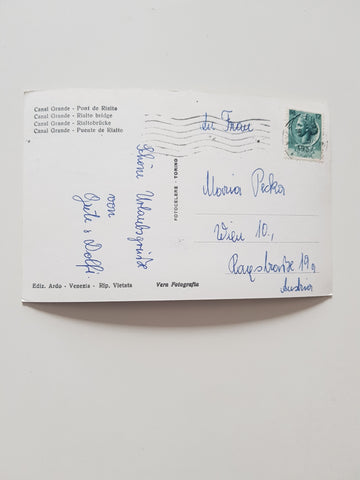 Canal Grande - Pont de Rialto
Canal Grande - Rialto bridge
Canal Grande - Rialtobrücke
Canal Grande - Puente de Rialto
Schöne Urlaubsgrüße
von
Dolfi.
FOTOCELERE - TORINO
An Frau
Maria Pecka
Wien 10.,
19a
Austria
Ediz. Ardo - Venezia - Rip. Vietata
Vera Fotografia